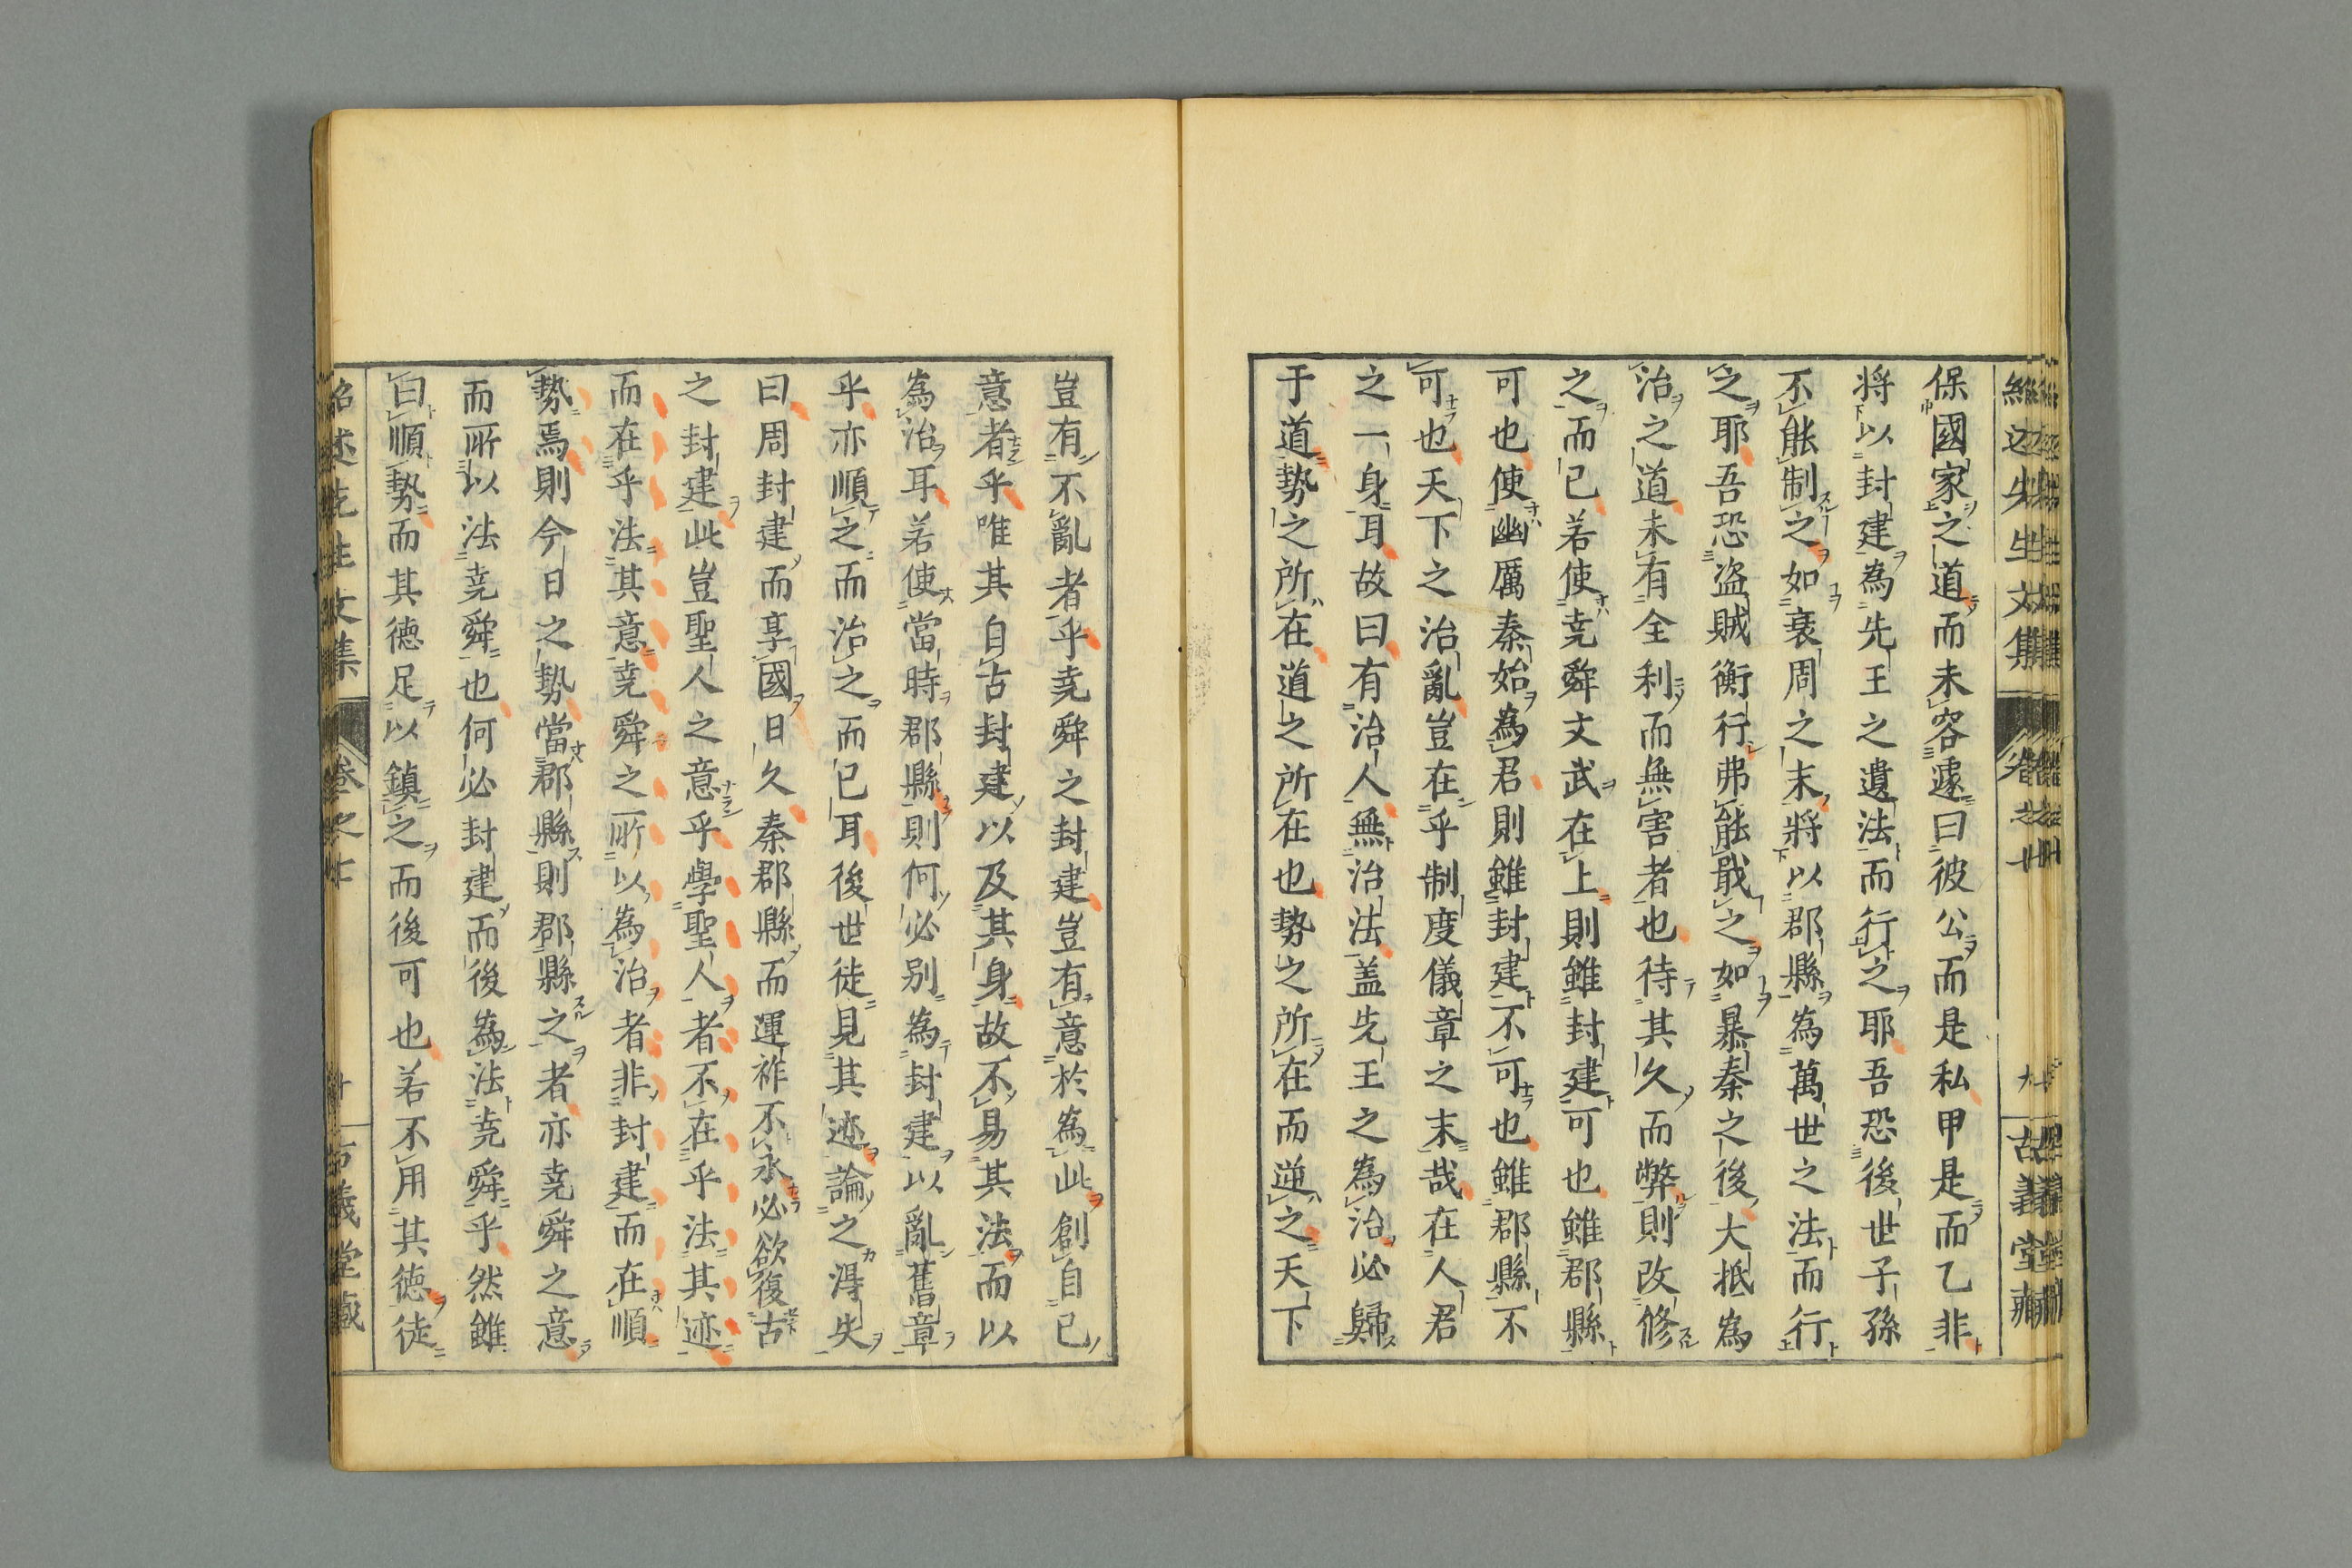 保國家之道而未容遽曰彼公而是私甲是而乙非
將以封建為先王之遺法而行之耶吾恐後世子孫
不能制之如衰周之末將以郡縣為萬世之法而行
之耶吾恐盗賊衡行弗能戢之如暴秦之後大抵為
治之道未有全利而無害者也待其久而弊則改修
之而已若使堯舜文武在上則雖封建可也雖郡縣
可也使幽厲秦始為君則雖封建不可也雖郡縣不
可也天下之治亂豈在乎制度儀章之末哉在人君
之一身耳故曰有治人無治法盖先王之為治必歸
于道勢之所在道之所在也勢之所在而逆之天下
豈有不亂者乎堯舜之封建豈有意於為此創自己
意者乎唯其自古封建以及其身故不易其法而以
為治耳若使當時郡縣則何必别為封建以亂舊章
乎亦順之而治之而已耳後世徒見其迹論之得失
曰周封建而享國日久秦郡縣而運祚不永必欲復古
之封建此豈聖人之意乎學聖人者不在乎法其迹
而在乎法其意堯舜之所以為治者非封建而在順
勢焉則今日之勢當郡縣則郡縣之者亦堯舜之意
而所以法堯舜也何必封建而後為法堯舜乎然雖
曰順勢而其徳足以鎮之而後可也若不用其徳徒
述先生文集 卷之 古義堂藏